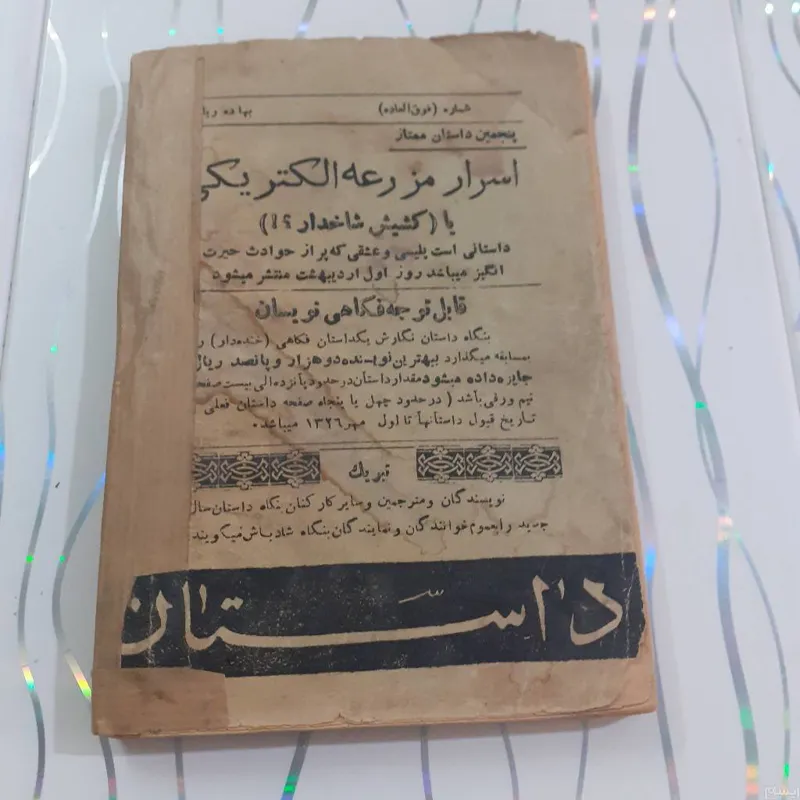 شماره (فوق العاده)
بها ده ریا
پنجمین داستان ممتاز
اسرار مزرعه الکتریکی
یا (کشیش شاخدار ؟!)
داستانی است پلیسی و عشقی که پر از حوادث حیرت
انگیز میباشد روز اول اردیبهشت منتشر میشود
قابل توجه فکاهی نویسان
بنگاه داستان نگارش یکداستان فکاهی (خنده دار) ر
بمسابقه میگذارد ببهترین نویسنده دو هزار و پانصد ریال
جایزه داده میشود مقدار داستان در حدود پانزده الی بیست صفحه
نیم ورقی باشد (در حدود چهل یا پنجاه صفحه داستان فعلی
تاریخ قبول داستانها تا اول مهر ۱۳۲۶ میباشد.
تبریك
نویسندگان و مترجمین و سایر کارکنان بنگاه داستان سال
جدید را بعموم خوانندگان و نمایندگان بنگاه شادباش میگویند
داستان